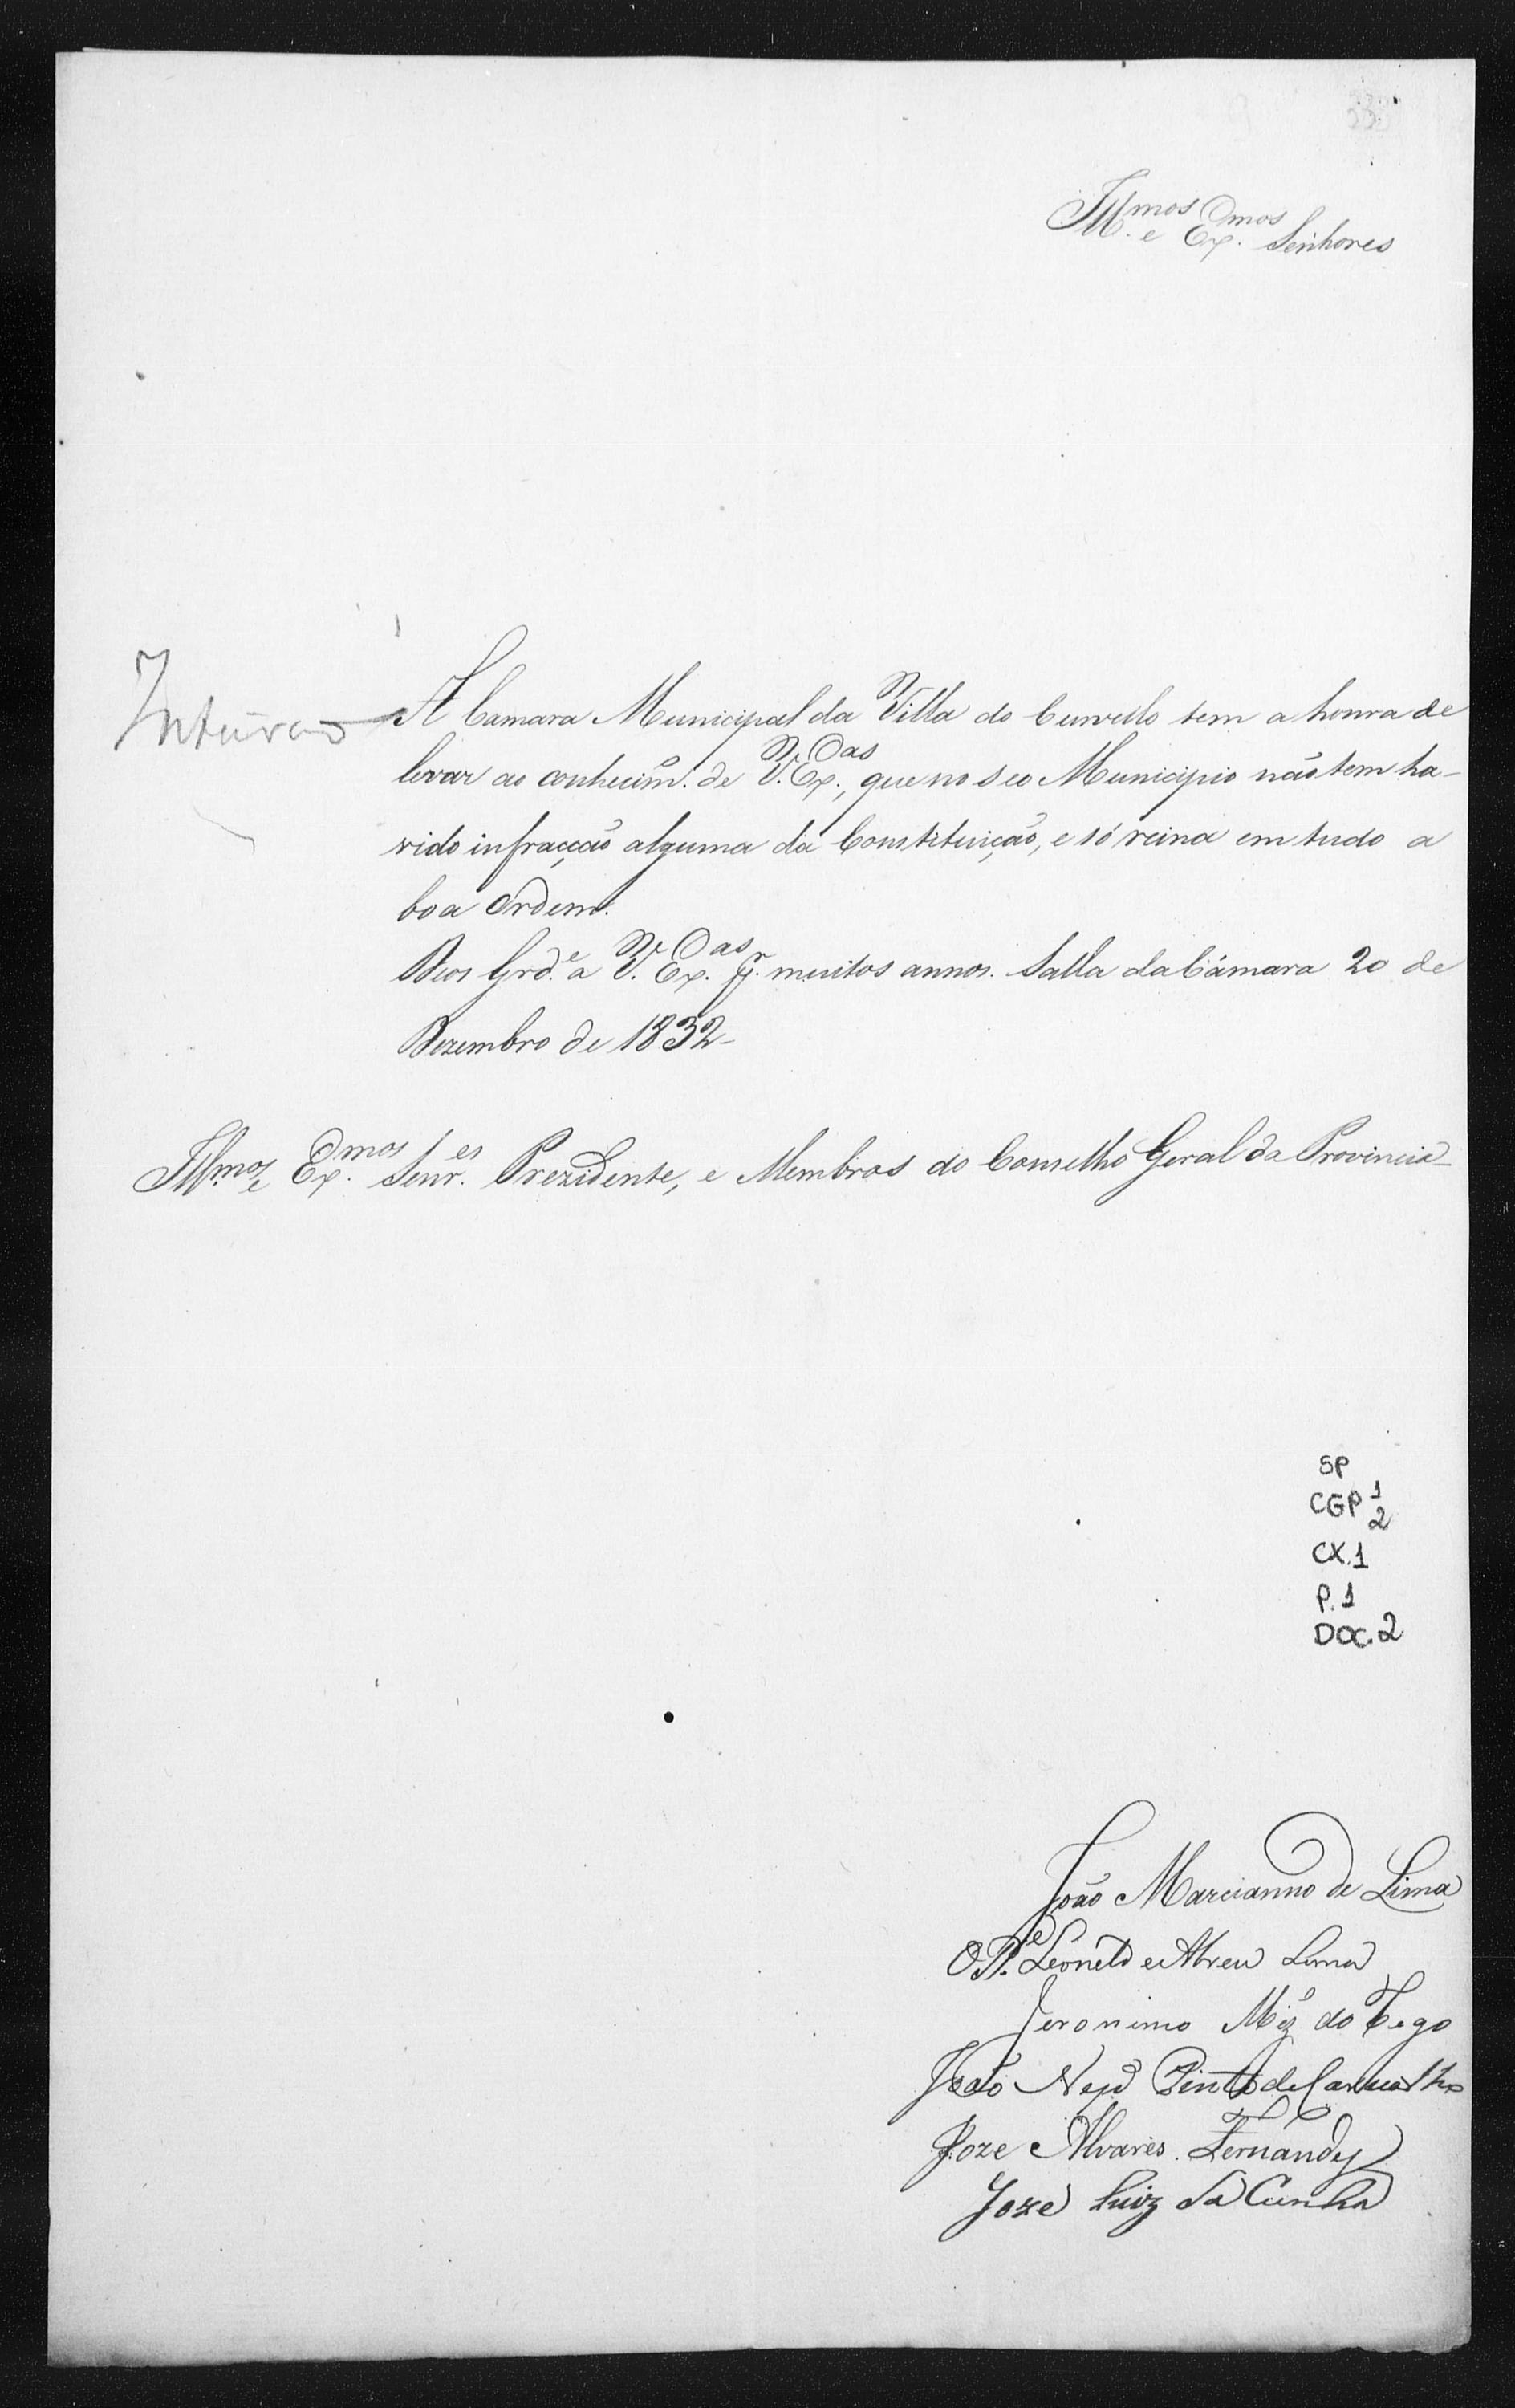 Ill.mos e Ex.mos Senhores
A Camara Municipal da Villa do Curvello tem a honra de
levar ao conhecim.o de V. Ex.as, que no seo Municipio não tem ha-
vido infracção alguma da Constituição, e só reina em tudo a
boa Ordem.
Deos Grd.e a V. Ex.as p.r muitos annos. Salla da Câmara 20 de
Dezembro de 1832-
Ill.mos e Ex.mos Senr.es Prezidente, e Membros do Conselho Geral da Provincia-
SP
CGP 1
2
CX.1
P.1
DOC.2
João Marcianno de Lima
O P.e Leonel de Abreu Lima
Jeronimo Miz do Rego
João Nep.o Pinto de Carvalho
Joze Alvares Fernandes
Joze Luiz da Cunha